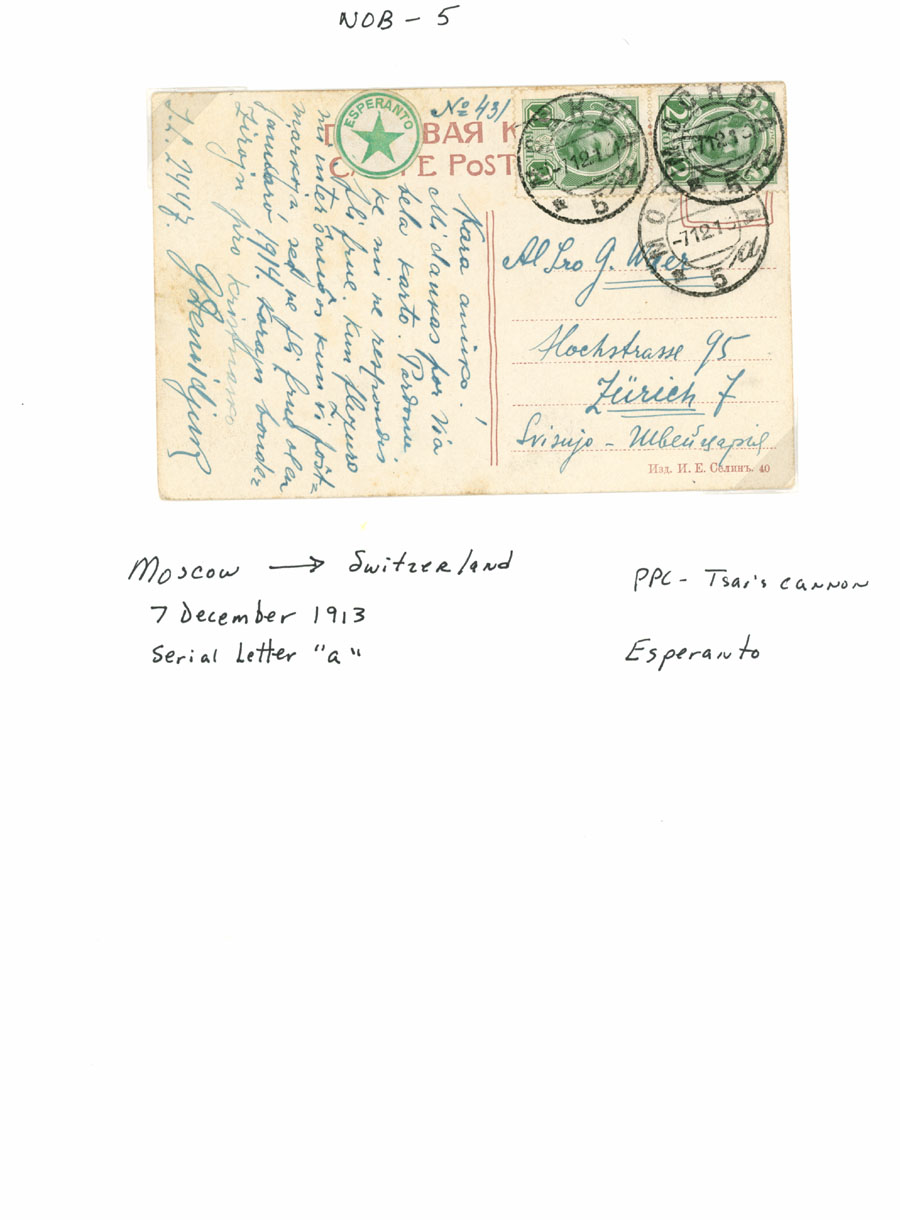 NOB - 5
ESPERANTO
№ 43
ВАЯ К
POST
Kara amiko!
Mi dankas por Via
bela karto. Pardonu,
ke mi ne respondis
pli frue. Kun plezuro
mi interŝanĝos kun vi poŝt-
markojn, sed ne pli frue olen
Januaro 1914. Korajn bondez-
irojn pro kristnasko
2447.
Al Sro G.
Hochstrasse 95
Zürich 7
Svisujo - Швейцарія
Изд. И. Е. Селинъ. 40
МОСКВА
-7.12.13
5
МОСКВА
-7.12.13
5
-7.12.1
5
Moscow → Switzerland
7 December 1913
Serial Letter "a"
PPC - Tsar's cannon
Esperanto